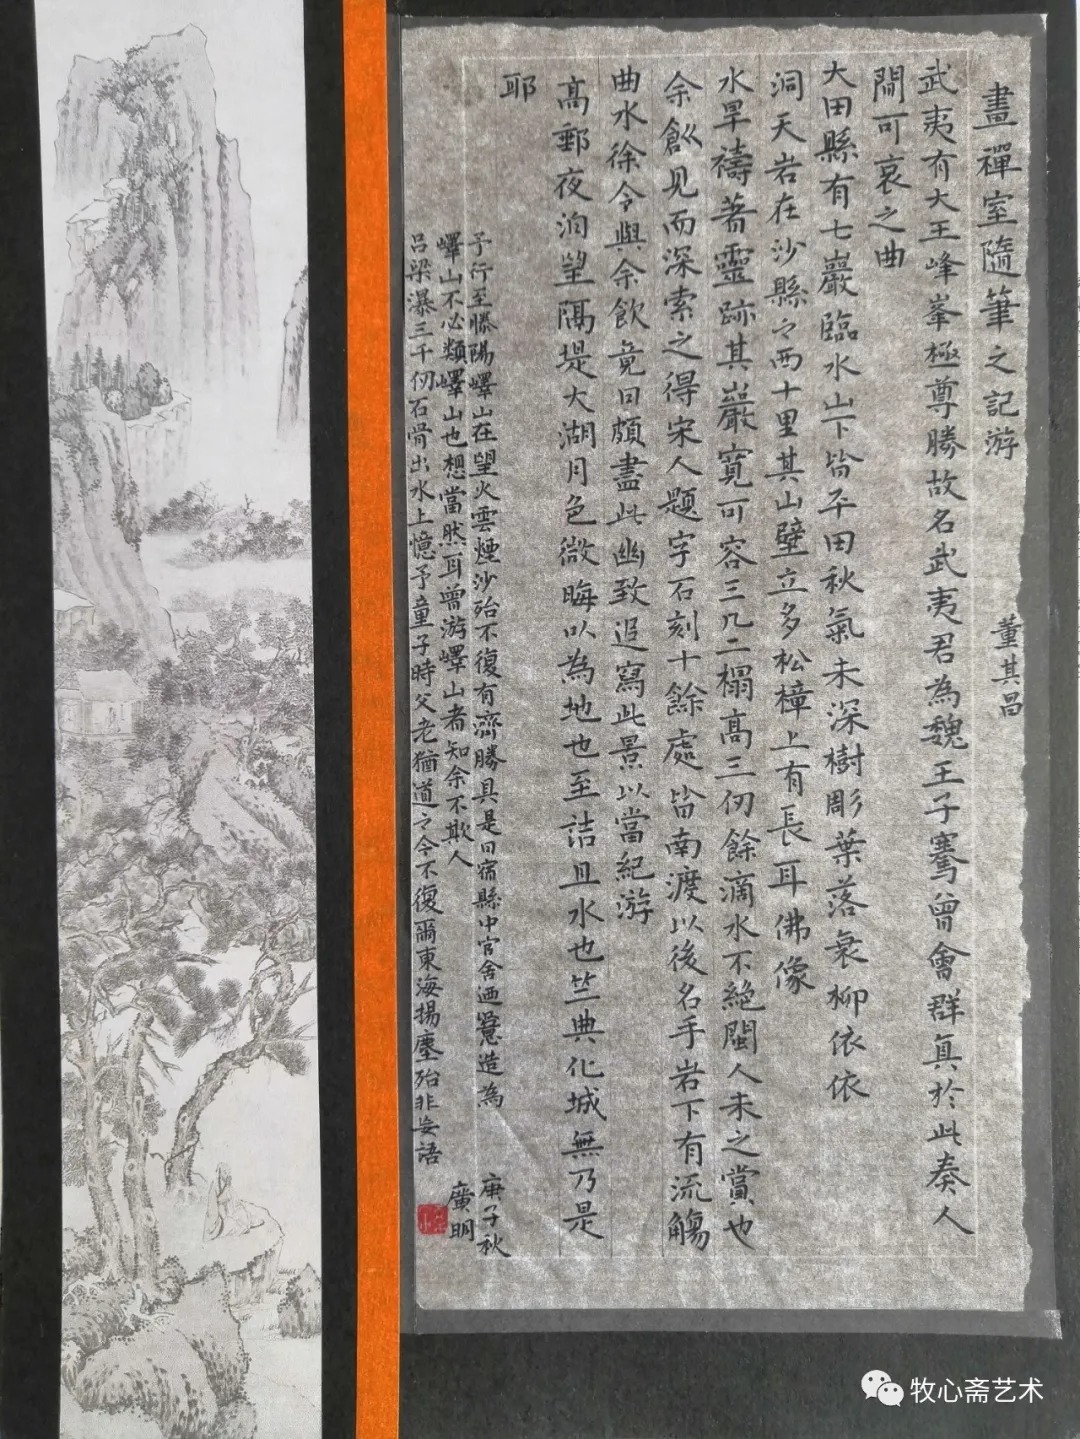 畫禪室隨筆之記游
董其昌
武夷有大王峰峯極尊勝故名武夷君為魏王子騫曾會群真於此奏人
間可哀之曲
大田縣有七巖臨水山下皆平田秋氣未深樹彫葉落衰柳依依
洞天岩在沙縣之西十里其山壁立多松樟上有長耳佛像
水旱禱著靈跡其巖寬可容三几二榻高三仞餘滴水不絕閩人未之賞也
余創見而深索之得宋人題字石刻十餘處皆南渡以後名手岩下有流觴
曲水徐令與余飲竟日頗盡此幽致追寫此景以當紀游
高郵夜泊望隔堤大湖月色微晦以為地也至詰旦水也竺典化城無乃是
耶
予行至滕陽嶧山在望火雲煙沙殆不復有濟勝具是日宿縣中官舍迺意造為
嶧山不必類嶧山也想當然耳曾游嶧山者知余不欺人
呂梁瀑三千仞石骨出水上憶予童子時父老猶道之今不復爾東海揚塵殆非妄語
庚子秋
廣明
牧心斋艺术